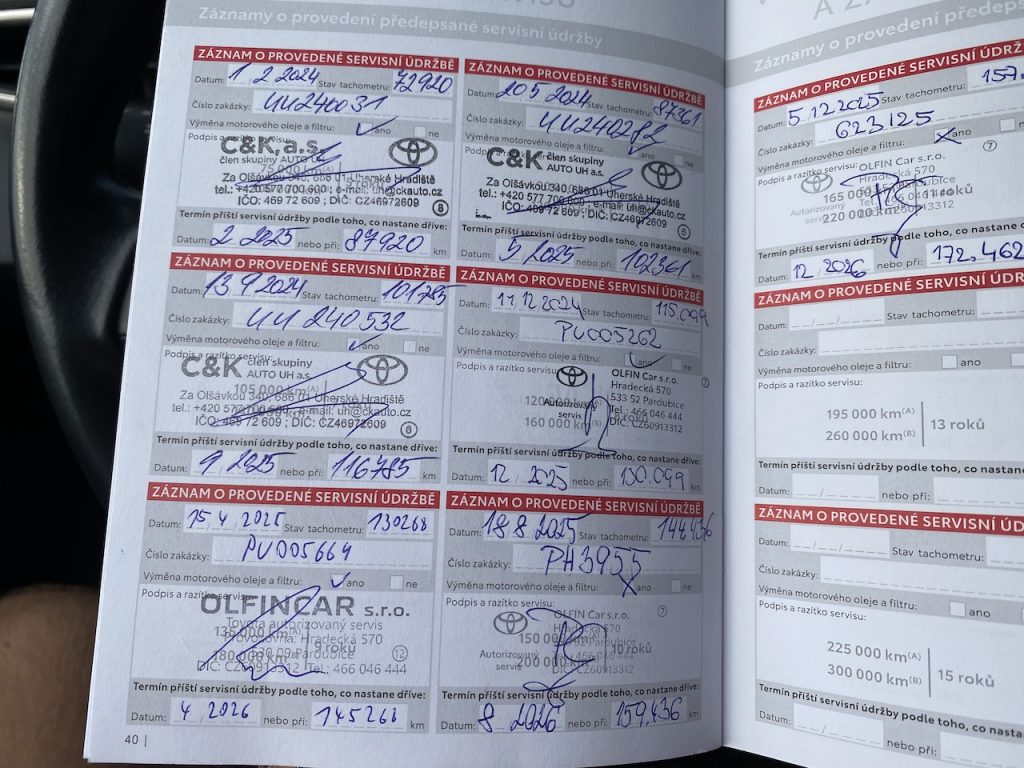 Záznamy o provedení předepsané servisní údržby
ZÁZNAM O PROVEDENÉ SERVISNÍ ÚDRŽBĚ
Datum: 1 2 2024 Stav tachometru: 72920
Číslo zakázky: UU240031
Výměna motorového oleje a filtru: ano ne
Podpis a razítko servisu:
C&K, a.s.
člen skupiny AUTO UH
Za Olšávkou 340, 686 01 Uherské Hradiště
tel.: +420 577 700 600 ; e-mail: uh@ckauto.cz
IČO: 469 72 609 ; DIČ: CZ46972609
8
Termín příští servisní údržby podle toho, co nastane dříve:
Datum: 2 2025 nebo při: 87920 km
ZÁZNAM O PROVEDENÉ SERVISNÍ ÚDRŽBĚ
Datum: 20 5 2024 Stav tachometru: 87361
Číslo zakázky: UU240282
Výměna motorového oleje a filtru: ano ne
Podpis a razítko servisu:
C&K člen skupiny
AUTO UH a.s.
Za Olšávkou 340, 686 01 Uherské Hradiště
tel.: +420 577 700 600 ; e-mail: uh@ckauto.cz
IČO: 469 72 609 ; DIČ: CZ46972609
6
Termín příští servisní údržby podle toho, co nastane dříve:
Datum: 5 2025 nebo při: 102361 km
ZÁZNAM O PROVEDENÉ SERVISNÍ ÚDRŽBĚ
Datum: 13 9 2024 Stav tachometru: 101785
Číslo zakázky: UU 240532
Výměna motorového oleje a filtru: ano ne
Podpis a razítko servisu:
C&K člen skupiny
AUTO UH a.s.
105 000 km(A)
Za Olšávkou 340, 686 01 Uherské Hradiště
tel.: +420 577 700 600 ; e-mail: uh@ckauto.cz
IČO: 469 72 609 ; DIČ: CZ46972609
6
Termín příští servisní údržby podle toho, co nastane dříve:
Datum: 9 2025 nebo při: 116785 km
ZÁZNAM O PROVEDENÉ SERVISNÍ ÚDRŽBĚ
Datum: 11 12 2024 Stav tachometru: 115.099
Číslo zakázky: PU005262
Výměna motorového oleje a filtru: ano ne
Podpis a razítko servisu:
OLFIN Car s.r.o.
Hradecká 570
533 52 Pardubice
Tel.: 466 046 444
DIČ: CZ60913312
7
Autorizovaný
servis
160 000 km(B)
Termín příští servisní údržby podle toho, co nastane dříve:
Datum: 12 2025 nebo při: 130.099 km
ZÁZNAM O PROVEDENÉ SERVISNÍ ÚDRŽBĚ
Datum: 15 4 2025 Stav tachometru: 130268
Číslo zakázky: PU005664
Výměna motorového oleje a filtru: ano ne
Podpis a razítko servisu:
OLFINCAR s.r.o.
Toyota autorizovaný servis
Provozovna: Hradecká 570
530 09 Pardubice
DIČ: CZ60913312 Tel.: 466 046 444
12
180 000 km
9 roků
Termín příští servisní údržby podle toho, co nastane dříve:
Datum: 4 2026 nebo při: 145268 km
ZÁZNAM O PROVEDENÉ SERVISNÍ ÚDRŽBĚ
Datum: 18 8 2025 Stav tachometru: 144436
Číslo zakázky: PH3955
Výměna motorového oleje a filtru: ano ne
Podpis a razítko servisu:
OLFIN Car s.r.o.
Hradecká 570
Pardubice
466 046 444
CZ60913312
7
Autorizovaný
servis
150 000 km
200 000 km(B)
10 roků
Termín příští servisní údržby podle toho, co nastane dříve:
Datum: 8 2026 nebo při: 159.436 km
40 |
A
Záznamy o provedení
ZÁZNAM O PROVEDENÉ SERVISNÍ
Datum: 5 12 2025 Stav tachometru: 157.
Číslo zakázky: 623125
Výměna motorového oleje a filtru: ano
Podpis a razítko servisu:
OLFIN Car s.r.o.
Hradecká 570
Pardubice
7
Autorizovaný
165 000
220 000
11 roků
Termín příští servisní údržby podle toho, co nastane
Datum: 12 2026 nebo při: 172.462
ZÁZNAM O PROVEDENÉ SERVISNÍ ÚD
Datum: Stav tachometru:
Číslo zakázky:
Výměna motorového oleje a filtru: ano
Podpis a razítko servisu:
195 000 km(A)
260 000 km(B)
13 roků
Termín příští servisní údržby podle toho, co nastane
Datum: nebo při:
ZÁZNAM O PROVEDENÉ SERVISNÍ ÚD
Datum: Stav tachometru:
Číslo zakázky:
Výměna motorového oleje a filtru: ano
Podpis a razítko servisu:
225 000 km(A)
300 000 km(B)
15 roků
Termín příští servisní údržby podle toho, co nastane
Datum: nebo při: